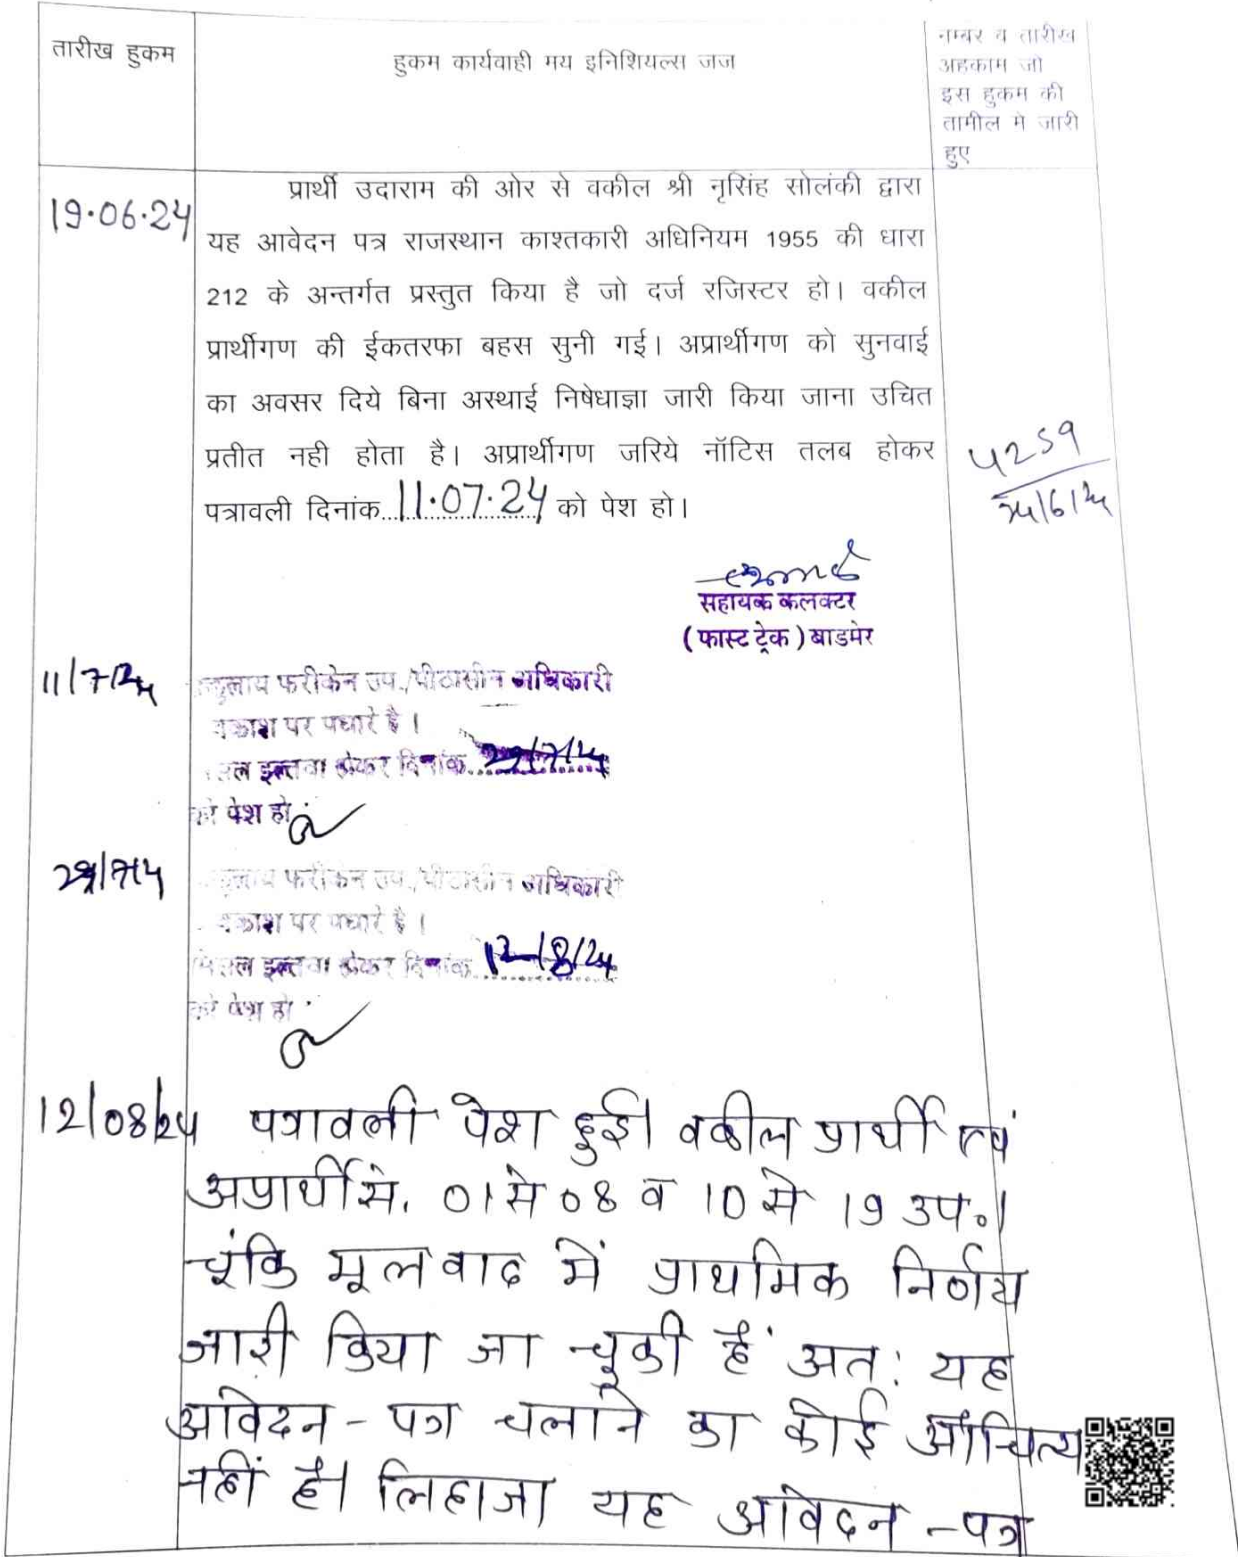 तारीख हुकम
हुकम कार्यवाही मय इनिशियल्स जज
नम्बर व तारीख
अहकाम जो
इस हुकम की
तामील मे जारी
हुए
19.06.24
प्रार्थी उदाराम की ओर से वकील श्री नृसिंह सोलंकी द्वारा
यह आवेदन पत्र राजस्थान काश्तकारी अधिनियम 1955 की धारा
212 के अन्तर्गत प्रस्तुत किया है जो दर्ज रजिस्टर हो। वकील
प्रार्थीगण की ईकतरफा बहस सुनी गई। अप्रार्थीगण को सुनवाई
का अवसर दिये बिना अस्थाई निषेधाज्ञा जारी किया जाना उचित
प्रतीत नही होता है। अप्रार्थीगण जरिये नॉटिस तलब होकर
पत्रावली दिनांक 11.07.24 को पेश हो।
4259
सहायक कलक्टर
(फास्ट ट्रेक) बाडमेर
11/7/24
फरीकेन उप./पीठासीन अधिकारी
पर पधारे है।
होकर दिनांक
को पेश हो
फरीकेन उप./पीठासीन अधिकारी
पर पधारे है।
होकर दिनांक 12/8/24
को पेश हो
12/08/24
पत्रावली पेश हुई। वकील प्रार्थी एवं
अप्रार्थी सं. 01 से 08 व 10 से 19 उप०।
चूंकि मूलवाद में प्राथमिक निर्णय
जारी किया जा चुकी हैं अत: यह
आवेदन-पत्र चलाने का कोई औचित्य
नहीं है। लिहाजा यह आवेदन-पत्र